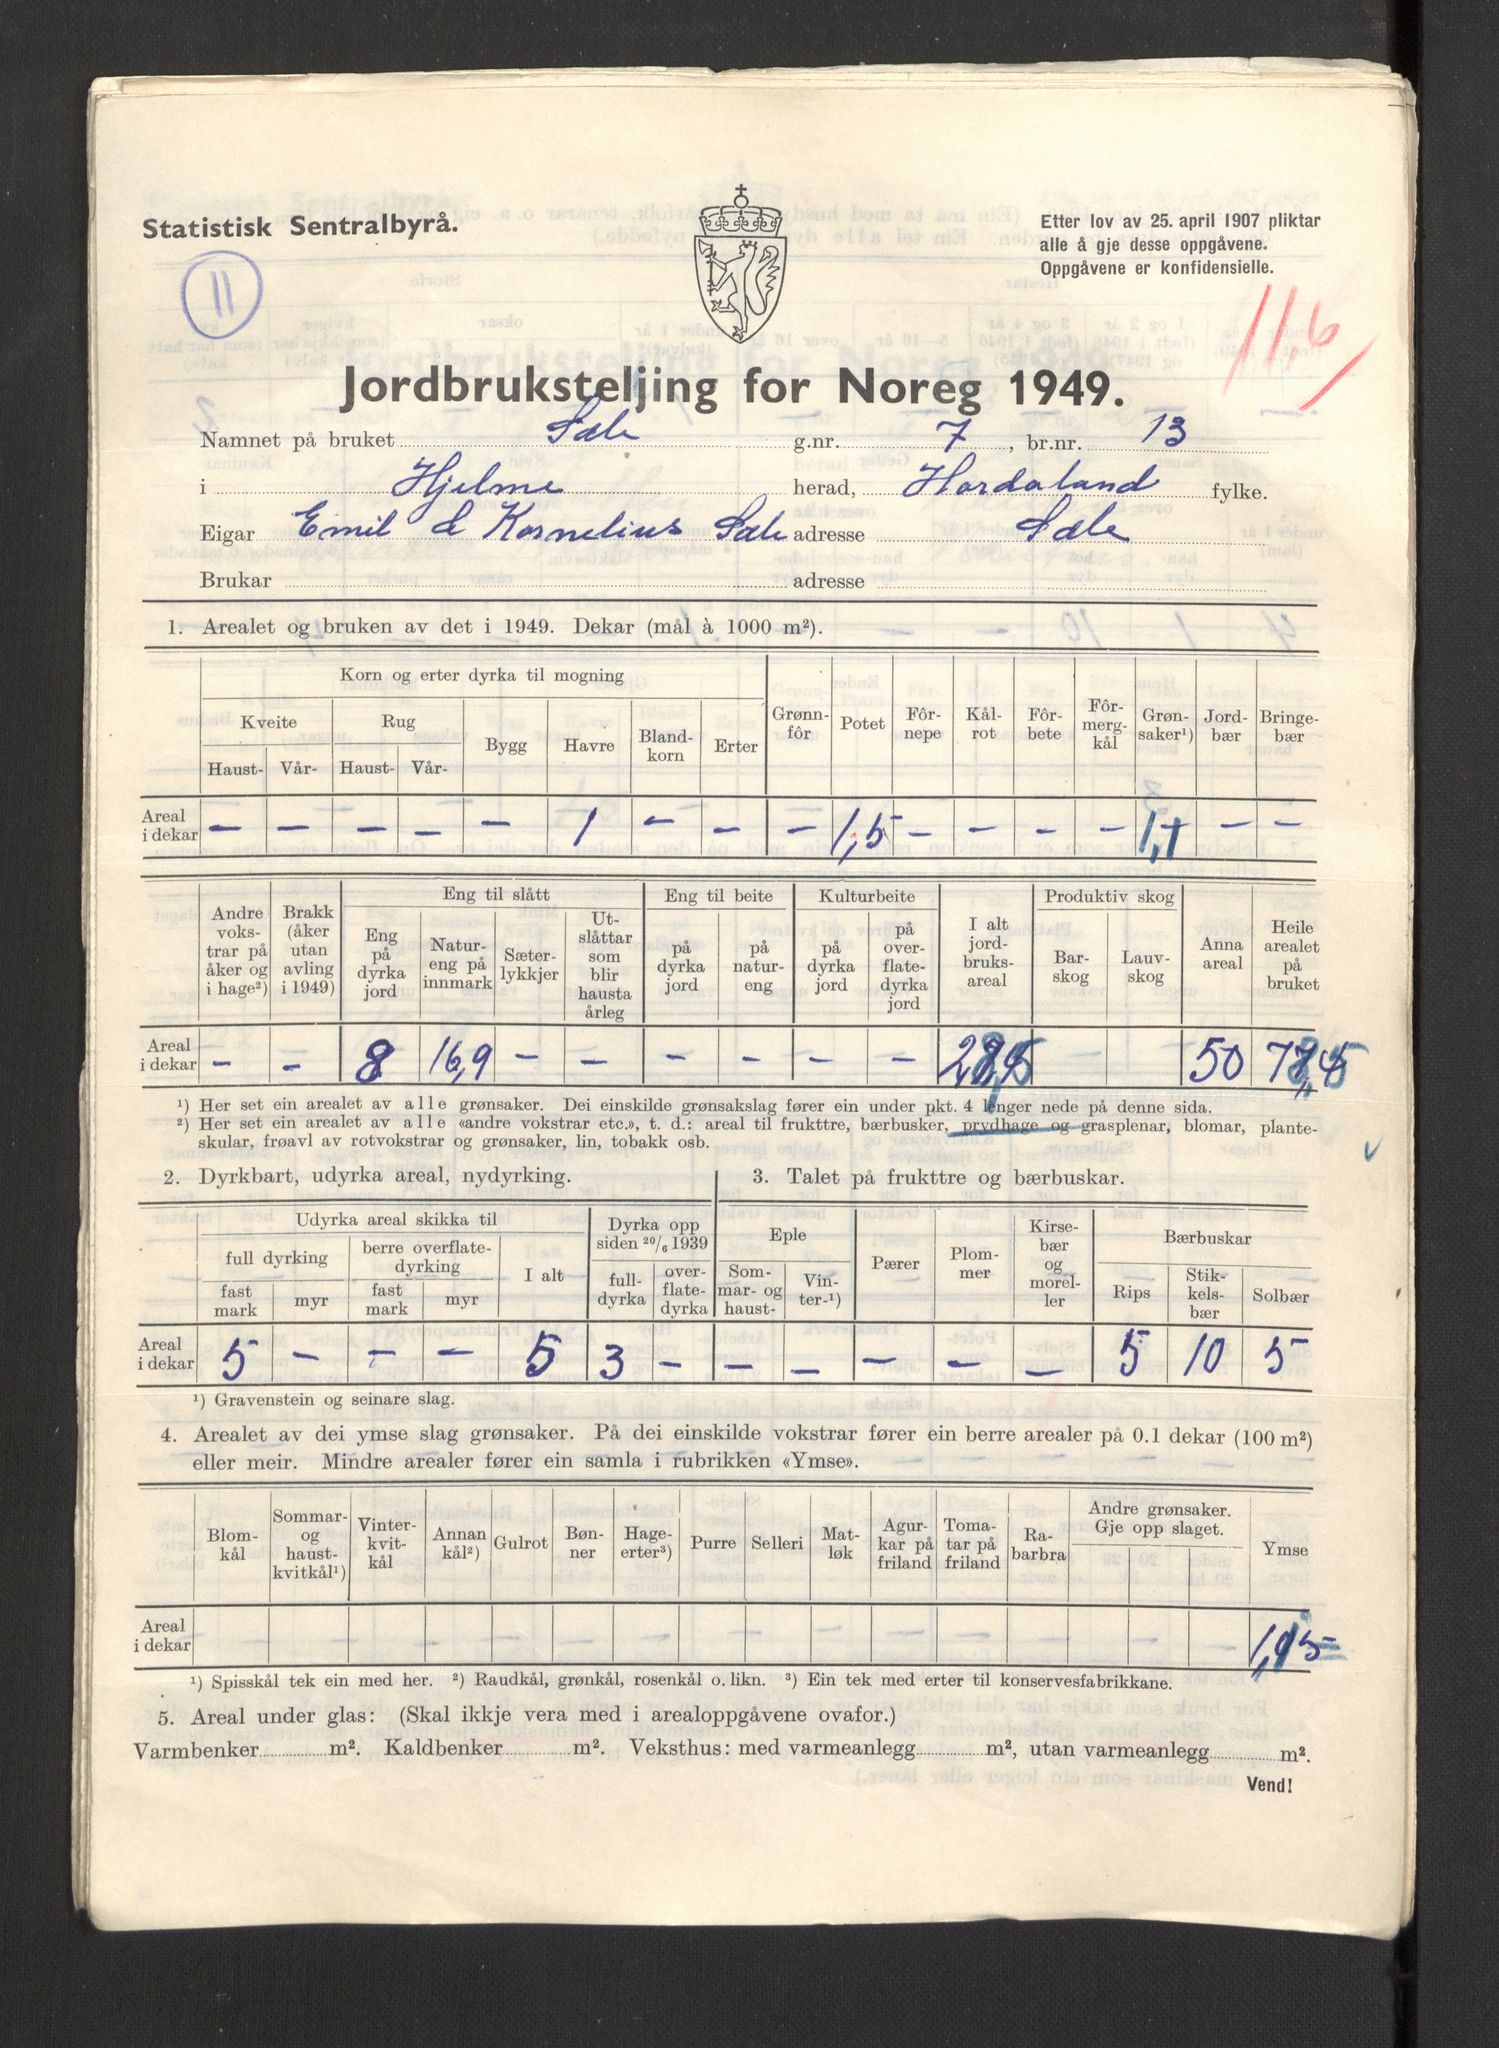 Statistisk Sentralbyrå.
Etter lov av 25. april 1907 pliktar
alle å gje desse oppgåvene.
Oppgåvene er konfidensielle.
11
11,6
Jordbruksteljing for Noreg 1949.
Namnet på bruket Sæle g.nr. 7, br.nr. 13
i Hjelme herad, Hordaland fylke.
Eigar Emil & Kornelius Sæle adresse Sæle
Brukar adresse
1. Arealet og bruken av det i 1949. Dekar (mål à 1000 m²).
Korn og erter dyrka til mogning
Kveite Rug Bygg Havre Bland-korn Erter Grønn-fôr Potet Fôr-nepe Kål-rot Fôr-bete Fôr-merg-kål Grøn-saker¹) Jord-bær Bringe-bær
Haust- Vår- Haust- Vår-
Areal i dekar — — — — — 1 — — — 1,5 — — — — 1,1 — —
Andre voks-trar på åker og i hage²) Brakk (åker utan avling i 1949) Eng til slått Eng til beite Kulturbeite I alt jord-bruks-areal Produktiv skog Anna areal Heile arealet på bruket
Eng på dyrka jord Natur-eng på innmark Sæter-lykkjer Ut-slåttar som blir hausta årleg på dyrka jord på natur-eng på dyrka jord på over-flate-dyrka jord Bar-skog Lauv-skog
Areal i dekar — — 8 16,9 — — — — — — 28,5 50 78,5
¹) Her set ein arealet av alle grønsaker. Dei einskilde grønsakslag fører ein under pkt. 4 lenger nede på denne sida.
²) Her set ein arealet av alle «andre vokstrar etc.», t. d.: areal til frukttre, bærbusker, prydhage og grasplenar, blomar, plante-
skular, frøavl av rotvokstrar og grønsaker, lin, tobakk osb.
2. Dyrkbart, udyrka areal, nydyrking. 3. Talet på frukttre og bærbuskar.
Udyrka areal skikka til Dyrka opp siden 20/6 1939 Eple Pærer Plom-mer Kirse-bær og morel-ler Bærbuskar
full dyrking berre overflate-dyrking I alt full-dyrka over-flate-dyrka Som-mar- og haust- Vin-ter-¹) Rips Stik-kels-bær Solbær
fast mark myr fast mark myr
Areal i dekar 5 — — — 5 3 — — — — — — 5 10 5
¹) Gravenstein og seinare slag.
4. Arealet av dei ymse slag grønsaker. På dei einskilde vokstrar fører ein berre arealer på 0.1 dekar (100 m²)
eller meir. Mindre arealer fører ein samla i rubrikken «Ymse».
Blom-kål Sommar- og haust-kvitkål¹) Vinter-kvit-kål Annan kål²) Gulrot Bøn-ner Hage-erter³) Purre Selleri Mat-løk Agur-kar på friland Toma-tar på friland Ra-barbra Andre grønsaker. Gje opp slaget. Ymse
Areal i dekar
¹) Spisskål tek ein med her. ²) Raudkål, grønkål, rosenkål o. likn. ³) Ein tek med erter til konservesfabrikkane.
5. Areal under glas: (Skal ikkje vera med i arealoppgåvene ovafor.)
Varmbenker m². Kaldbenker m². Veksthus: med varmeanlegg m², utan varmeanlegg m².
Vend!